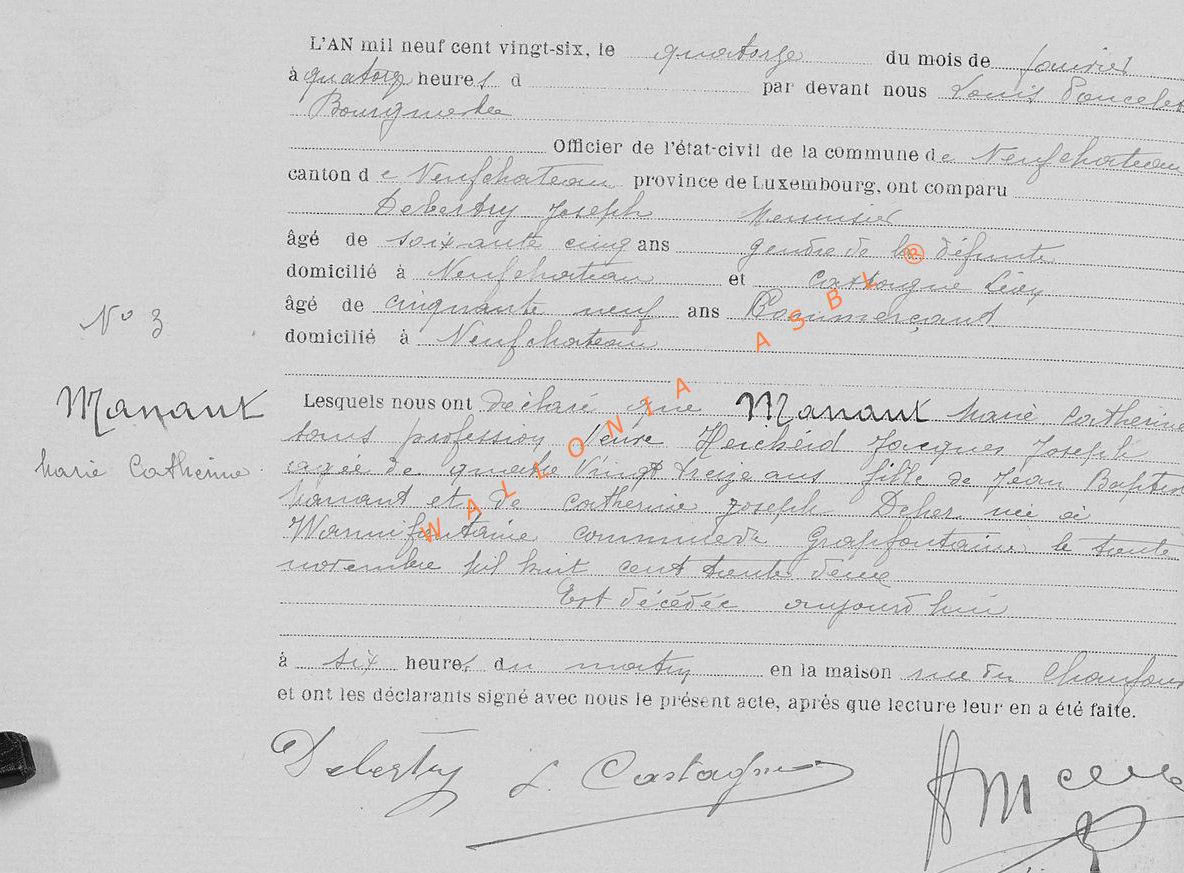 L'AN mil neuf cent vingt-six, le quatorze du mois de Janvier
à quatorze heures d par devant nous Louis Poncelet
Bourgmestre
Officier de l'état-civil de la commune de Neufchateau
canton de Neufchateau province de Luxembourg, ont comparu
Debertry Joseph Menuisier
âgé de soixante cinq ans gendre de la défunte
domicilié à Neufchateau et Castagne
N° 3
âgé de cinquante neuf ans Commerçant
domicilié à Neufchateau
Manant
Marie Catherine
Lesquels nous ont déclaré que Manant Marie Catherine
sans profession Veuve Jacques Joseph
agée de quatre Vingt treize ans fille de Jean Baptiste
Manant et de Catherine Joseph née à
Warmifontaine commune de Grapfontaine le trente
novembre mil huit cent trente deux
Est décédée aujourd'hui
à six heures du matin en la maison rue du Chaufour
et ont les déclarants signé avec nous le présent acte, après que lecture leur en a été faite.
Debertry L. Castagne
WALLONIA ASBL ®